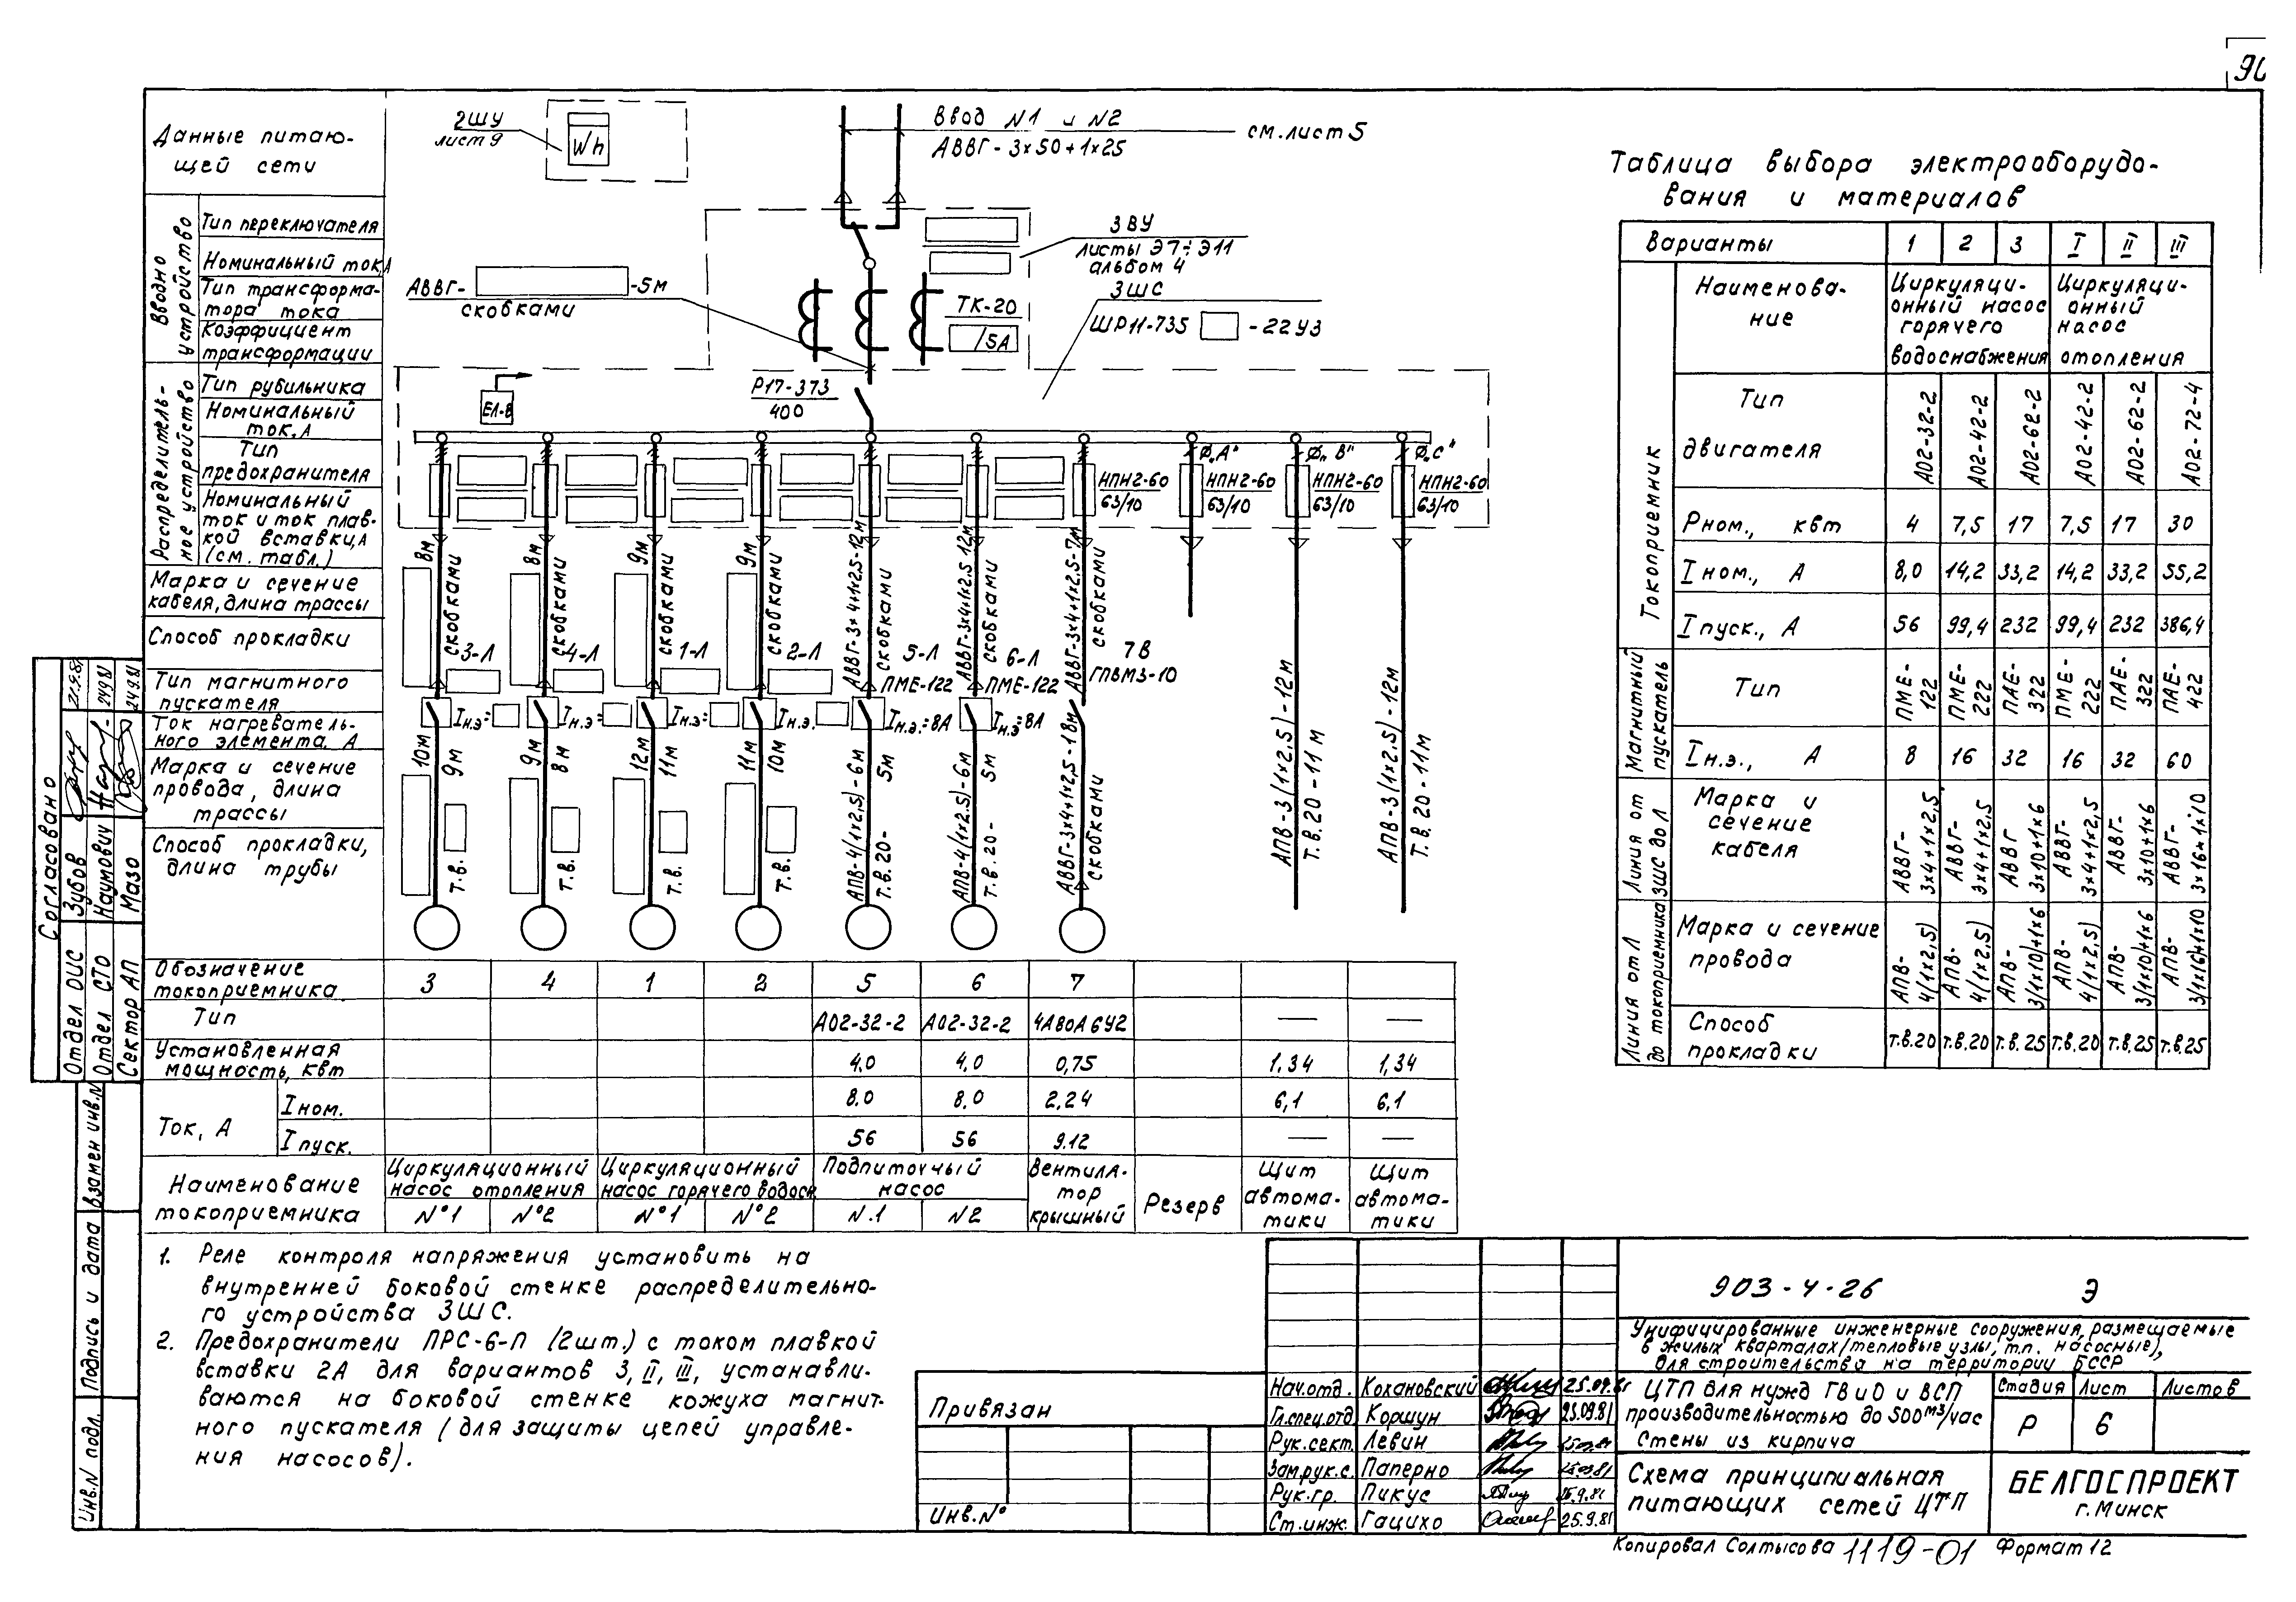 90
Данные питаю-
щей сети
Вводно
устройство
Тип переключателя
Номинальный ток,А
Тип трансформа-
тора тока
Коэффициент
трансформации
Распределитель-
ное устройство
Тип рубильника
Номинальный
ток, А
Тип
предохранителя
Номинальный
ток и ток плав-
кой вставки, А
(см. табл.)
Марка и сечение
кабеля, длина трассы
Способ прокладки
Тип магнитного
пускателя
Ток нагреватель-
ного элемента, А
Марка и сечение
провода, длина
трассы
Способ прокладки,
длина трубы
2ШУ
лист 9
Wh
Ввод N1 и N2
АВВГ-3х50+1х25
см. лист 5
3ВУ
листы Э7÷Э11
альбом 4
АВВГ- -5м
скобками
ТК-20
/5А
3ШС
ШР11-735 -22У3
Р17-373
400
ЕЛ-8
НПН2-60
63/10
Ф„А"
НПН2-60
63/10
Ф„В"
НПН2-60
63/10
Ф„С"
НПН2-60
63/10
8м скобками 3-Л
8м скобками 4-Л
9м скобками 1-Л
9м скобками 2-Л
АВВГ-3х4+1х2,5-12м скобками 5-Л ПМЕ-122
АВВГ-3х4+1х2,5 12м скобками 6-Л ПМЕ-122
АВВГ-3х4+1х2,5-7м скобками 7В ГПВМ3-10
Iн.э= Iн.э= Iн.э= Iн.э. Iн.э.=8А Iн.э=8А
10м 9м т.в.
9м 8м т.в.
12м 11м т.в.
11м 10м т.в.
АПВ-4(1х2,5)-6м
т.в.20- 5м
АПВ-4(1х2,5)-6м
т.в.20- 5м
АВВГ-3х4+1х2,5-18м
скобками
АПВ-3(1х2,5)-12м
Т.в.20-11м
АПВ-3(1х2,5)-12м
Т.в.20-11м
Обозначение
токоприемника 3 4 1 2 5 6 7
Тип А02-32-2 А02-32-2 4А80А6У2 — —
Установленная
мощность, квт 4.0 4.0 0,75 1,34 1,34
Ток, А
Iном. 8.0 8.0 2,24 6,1 6,1
Iпуск. 56 56 9.12 — —
Наименование
токоприемника
Циркуляционный
насос отопления
N°1 N°2
Циркуляционный
насос горячего водосн
N°1 N°2
Подпиточный
насос
N.1 N2
Вентиля-
тор
крышный
Резерв
Щит
автома-
тики
Щит
автома-
тики
1. Реле контроля напряжения установить на
внутренней боковой стенке распределительно-
го устройства 3ШС.
2. Предохранители ПРС-6-П (2шт.) с током плавкой
вставки 2А для вариантов 3, II, III, устанавли-
ваются на боковой стенке кожуха магнит-
ного пускателя (для защиты цепей управле-
ния насосов).
Таблица выбора электрооборудо-
вания и материалов
Варианты 1 2 3 I II III
Токоприемник
Наименова-
ние
Циркуляци-
онный насос
горячего
водоснабжения
Циркуляци-
онный
насос
отопления
Тип
двигателя
А02-32-2 А02-42-2 А02-62-2 А02-42-2 А02-62-2 А02-72-4
Рном., квт 4 7,5 17 7,5 17 30
Iном., А 8,0 14,2 33,2 14,2 33,2 55,2
Iпуск., А 56 99,4 232 99,4 232 386,4
Магнитный
пускатель
Тип ПМЕ-122 ПМЕ-222 ПАЕ-322 ПМЕ-222 ПАЕ-322 ПАЕ-422
Iн.э., А 8 16 32 16 32 60
Линия от
3ШС до Л
Марка и
сечение
кабеля
АВВГ-3х4+1х2,5 АВВГ-3х4+1х2,5 АВВГ 3х10+1х6 АВВГ-3х4+1х2,5 АВВГ-3х10+1х6 АВВГ-3х16+1х10
Линия от Л
до токоприемника
Марка и сечение
провода
АПВ-4(1х2,5) АПВ-4(1х2,5) АПВ-3(1х10)+1х6 АПВ-4(1х2,5) АПВ-3(1х10)+1х6 АПВ-3(1х16)+1х10
Способ
прокладки
т.в.20 т.в.20 т.в.25 т.в.20 т.в.25 т.в.25
Согласовано
Отдел ОИС Зубов
Отдел СТО Наумович 24.9.81
Сектор АП Мазо 24.9.81
Взамен инв.N
Подпись и дата
Инв.N подл.
Привязан
Инв.N°
Нач.отд. Кохановский 25.09.81
Гл.спец.отд Коршун 25.09.81
Рук.сект. Левин
Зам.рук.с. Паперно
Рук.гр. Пикус 25.9.81
Ст.инж. Гацихо 25.9.81
903-4-26 Э
Унифицированные инженерные сооружения, размещаемые
в жилых кварталах (тепловые узлы, т.п. насосные),
для строительства на территории БССР
ЦТП для нужд ГВ и О и ВСП
производительностью до 500 м3/час
Стены из кирпича
Стадия Лист Листов
Р 6
Схема принципиальная
питающих сетей ЦТП
БЕЛГОСПРОЕКТ
г. Минск
Копировал Солтысова 1119-01 Формат 12